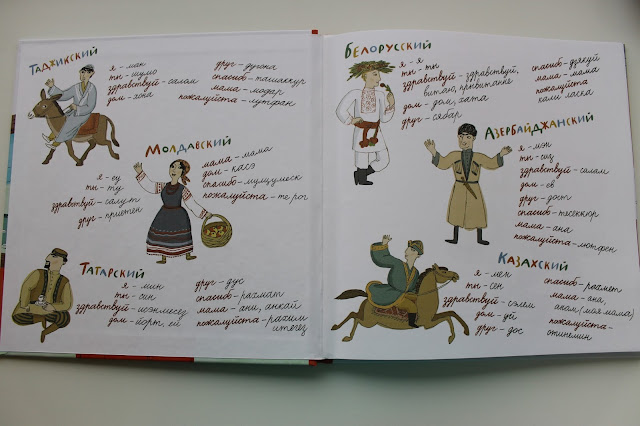 Таджикский
я - ман
ты - шумо
здравствуй - салом
дом - хона
друг - дугона
спасибо - ташаккур
мама - модар
пожалуйста - лутфан
Молдавский
я - еу
ты - ту
здравствуй - салут
друг - приетен
мама - мама
дом - касэ
спасибо - мулцумеск
пожалуйста - те рог
Татарский
я - мин
ты - син
здравствуй - исэнмесез
дом - йорт, ей
друг - дус
спасибо - рахмат
мама - ани, анкай
пожалуйста - рахим
итегез
Белорусский
я - я
ты - ты
здравствуй - здравствуй,
витаю, прывітанне
дом - дом, хата
друг - сябар
спасибо - дзякуй
мама - мама
пожалуйста
калі ласка
Азербайджанский
я - мэн
ты - сэн
здравствуй - салам
дом - ев
друг - дост
спасибо - тесеккюр
мама - ана
пожалуйста - лютфен
Казахский
я - мен
ты - сен
здравствуй - сэлем
дом - уй
друг - дос
спасибо - рахмет
мама - ана,
анам (моя мама)
пожалуйста -
отинемин